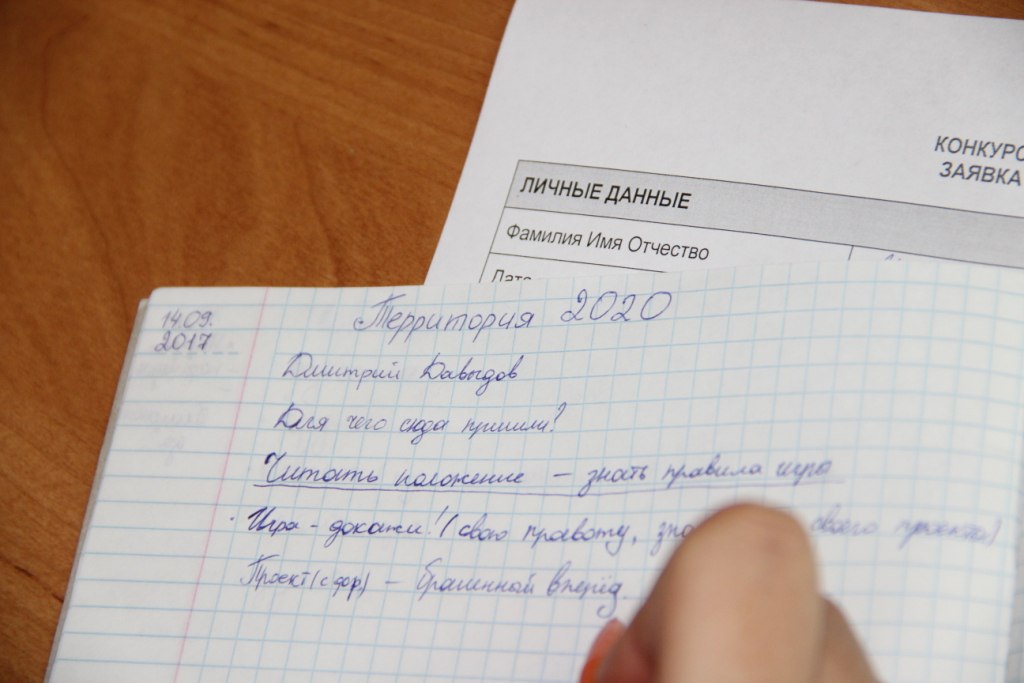 КОНКУРС
ЗАЯВКА
ЛИЧНЫЕ ДАННЫЕ
Фамилия Имя Отчество
Дата
14.09.
2017
Территория 2020
Дмитрий Давыдов
Для чего сюда пришли?
Читать положение – знать правила игры
Игра – докажи! (свою правоту, своего проекта)
Проект – брошенный вперёд